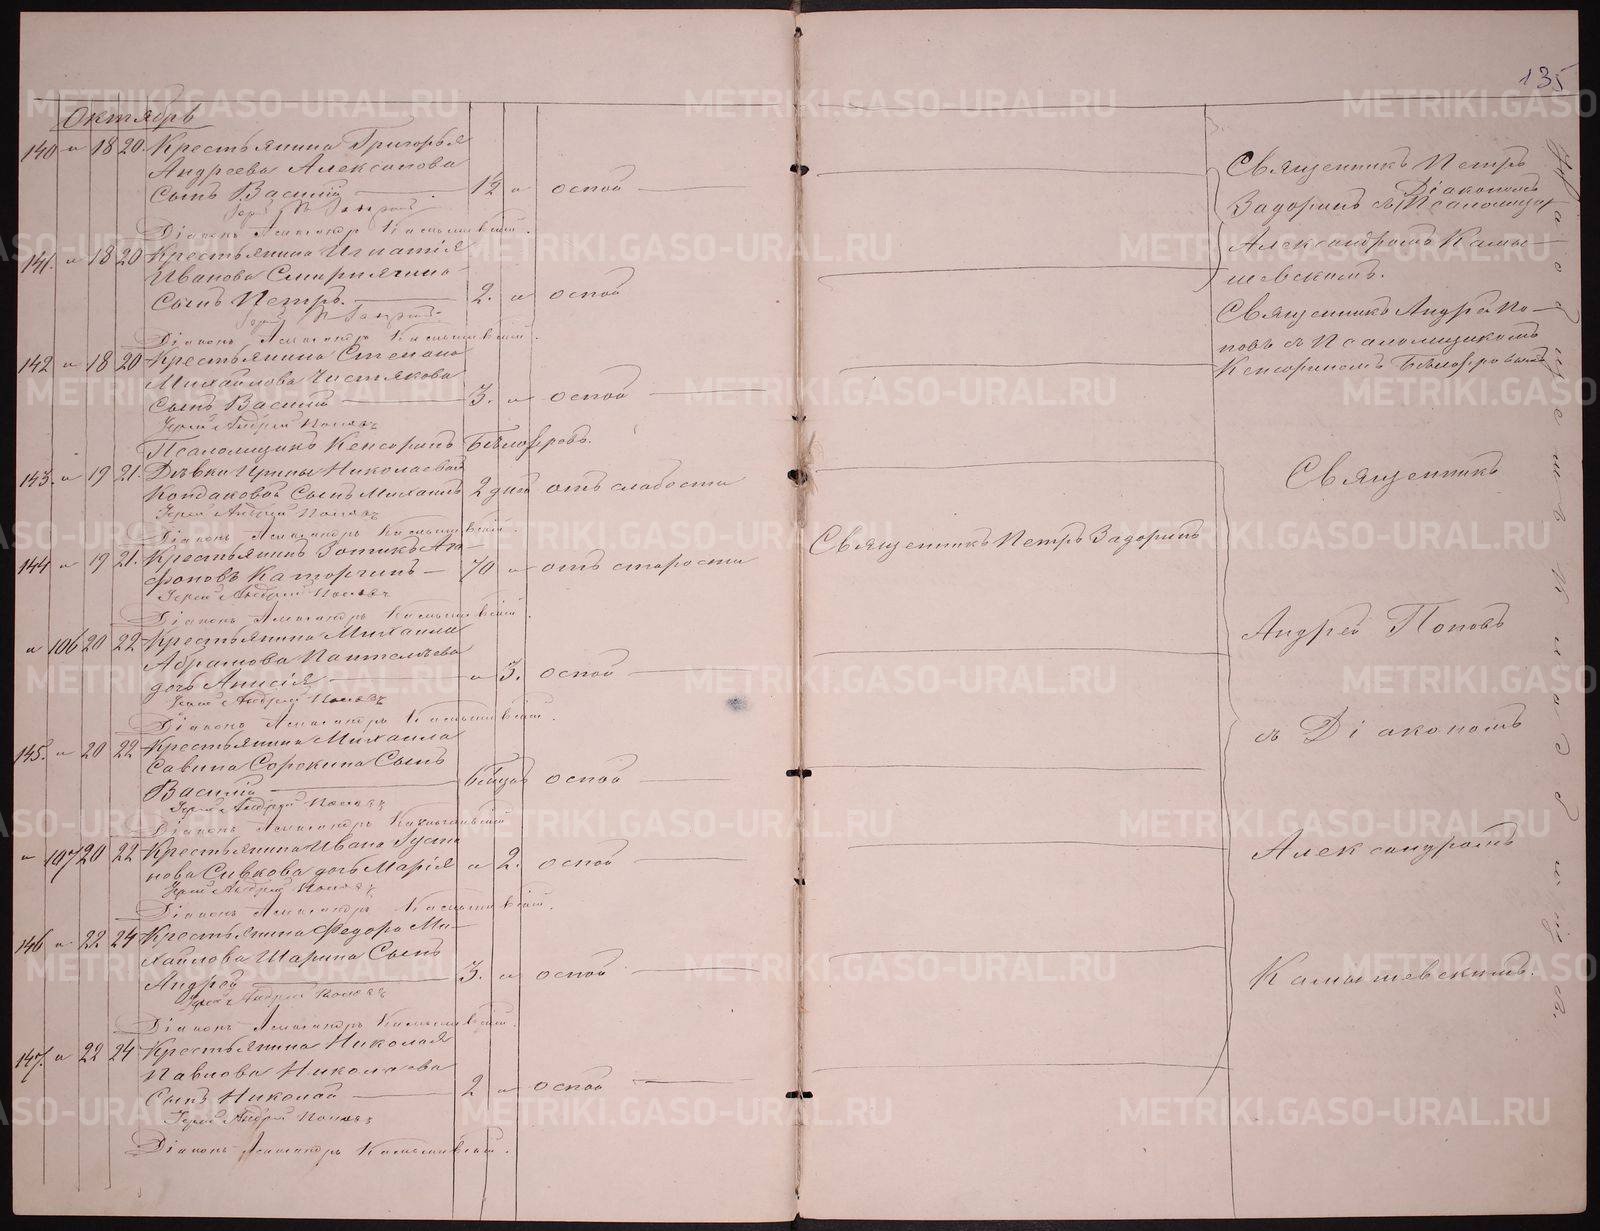 135
Октябрь
140 " 18 20. Крестьянина Григорья
Андреева Алексанова
сынъ Василій 1½ " оспой
Іерей П. Задоринъ
Діаконъ Александръ Камышевскій.
141. " 18 20 Крестьянина Игнатія
Иванова Смирнягина
сынъ Петръ. 2. " оспой
Іерей П. Задоринъ
Діаконъ Александръ Камышевскій.
142 " 18 20 Крестьянина Степана
Михайлова Чистякова
сынъ Василій 3. " оспой
Іерей Андрей Поповъ
Псаломщикъ Кенсоринъ Бѣлозеровъ.
143. " 19 21. Дѣвки Ирины Николаевой
Кондаковой сынъ Михаилъ 2 дней отъ слабости
Іерей Андрей Поповъ
Діаконъ Александръ Камышевскій.
144 " 19 21. Крестьянинъ Зотикъ
Каторгинъ 70 " отъ старости
Іерей Андрей Поповъ
Діаконъ Александръ Камышевскій.
" 106 20 22 Крестьянина Михаила
Абрамова Пантелѣева
дочь Анисія " 3. оспой
Іерей Андрей Поповъ
Діаконъ Александръ Камышевскій.
145. " 20 22 Крестьянина Михаила
Савина Сорокина сынъ
Василій оспой
Іерей Андрей Поповъ
Діаконъ Александръ Камышевскій
" 107 20 22 Крестьянина Ивана
Сивкова дочь Марія " 2. оспой
Іерей Андрей Поповъ
Діаконъ Александръ Камышевскій.
146 " 22 24 Крестьянина Федора Ми-
хайлова Шарина сынъ
Андрей 3. " оспой
Іерей Андрей Поповъ
Діаконъ Александръ Камышевскій.
147. " 22 24 Крестьянина Николая
Павлова Николаева
сынъ Николай 2 " оспой
Іерей Андрей Поповъ
Діаконъ Александръ Камышевскій.
Священникъ Петръ
Діакономъ
Задоринъ съ Псаломщик
Александромъ Камы-
шевскимъ.
Священникъ Андрей По-
повъ съ Псаломщикомъ
Кенсориномъ Бѣлозеровымъ
Священникъ Петръ Задоринъ
Священникъ
Андрей Поповъ
съ Діакономъ
Александромъ
Камышевскимъ.
На
METRIKI.GASO-URAL.RU